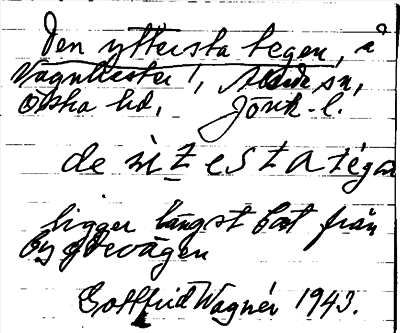 Den yttersta tegen, å
Vagnhester,
Östra hd, Jönk-l.
de ìtestatégan
ligger längst bort från
bygdevägen
Gottfrid Wagnér 1943.